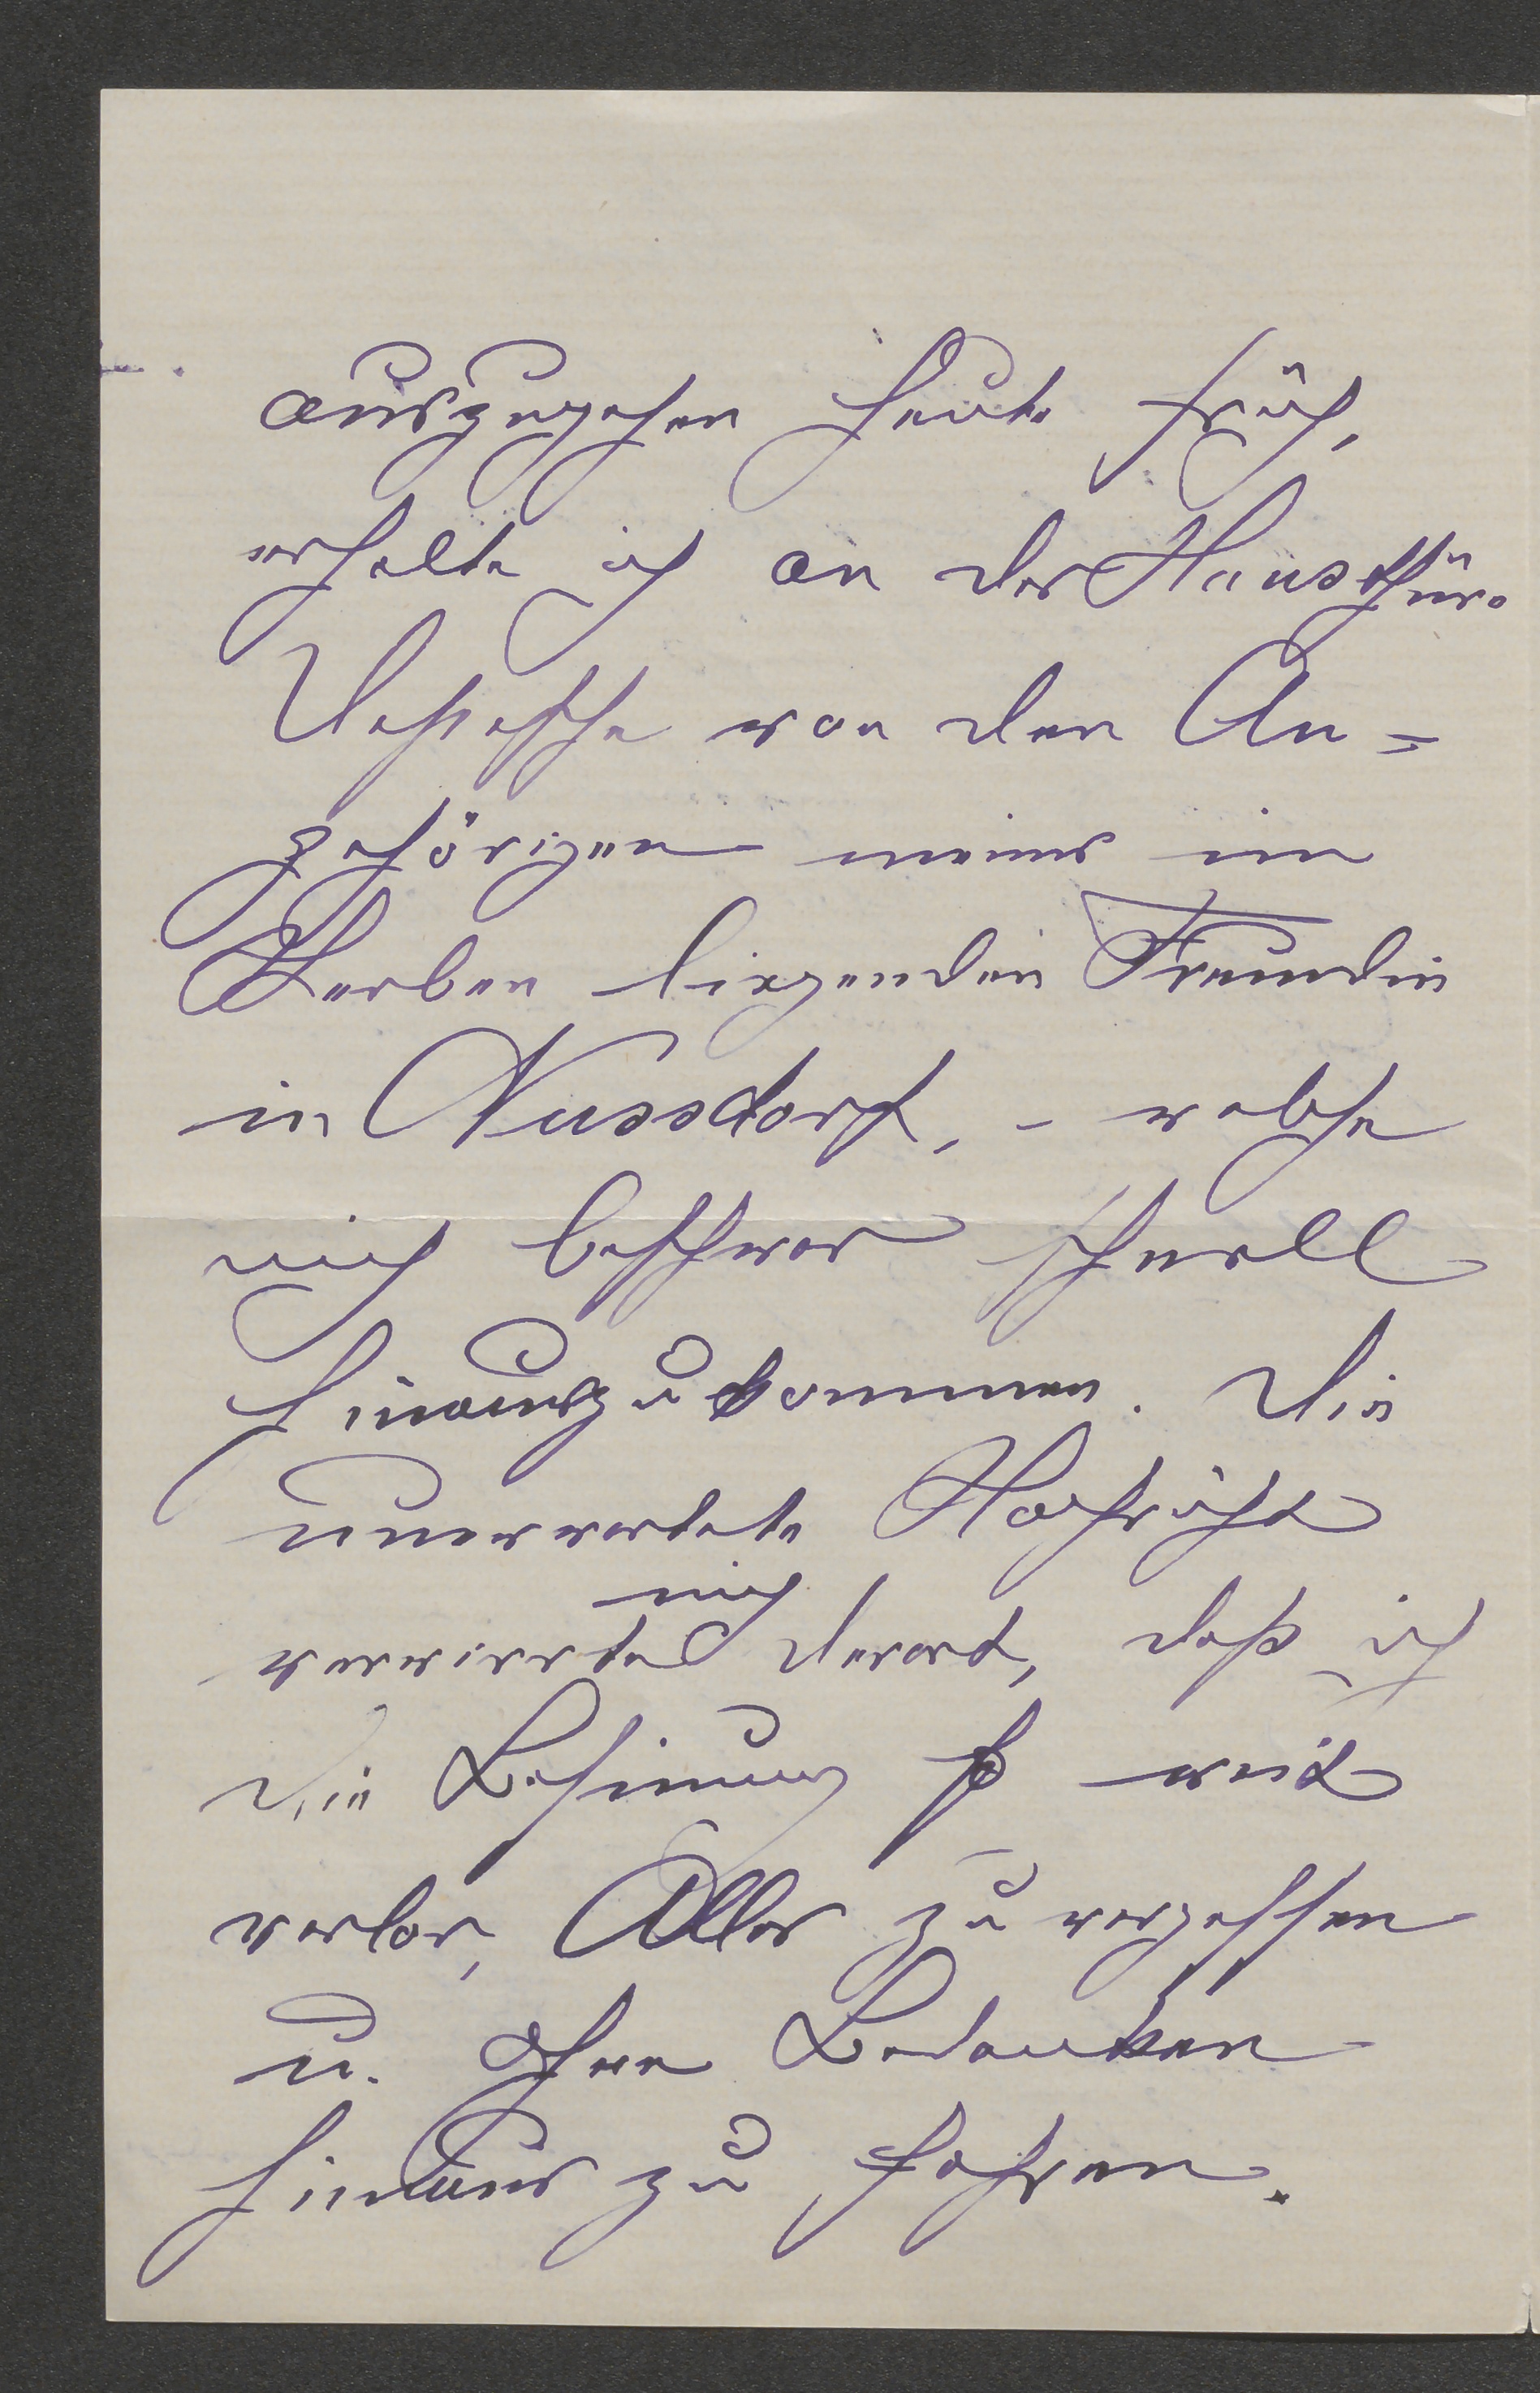 auszugehen heute früh,
erhalte ich an der Hausthüre
Depesche von den An=
gehörigen meiner im
Sterben liegenden Freundin
in Nussdorf, – welche
mich beschwor schnell
hinauszukommen. Die
unerwartete Nachricht
mich
verwirrte derart, daß ich
die Besinnung so weit
verlor, Alles zu vergessen
u. ohne Bedenken
hinaus zu fahren.